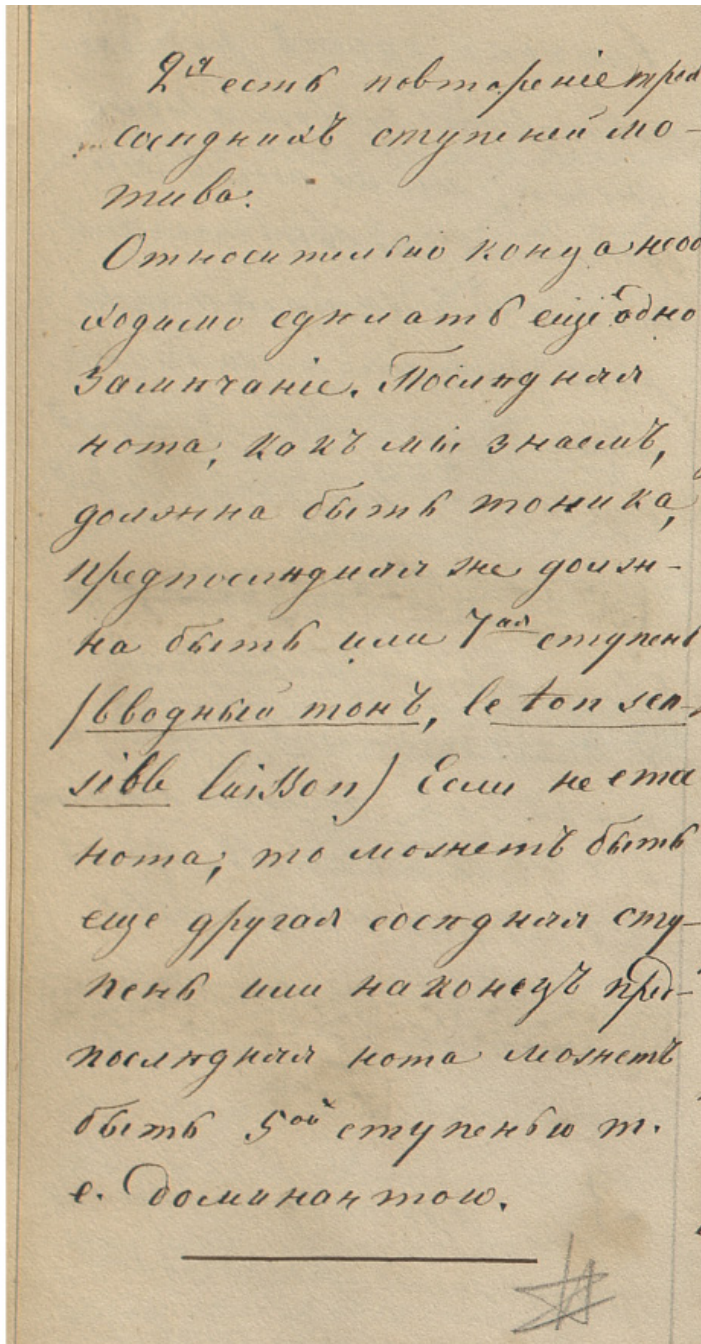 2ая есть повтореніе трех
сосѣднихъ ступеней мо-
тива.
Относительно конца необ
ходимо сдѣлать еще одно
замѣчаніе. Послѣдняя
нота, какъ мы знаемъ,
должна быть тоника,
предпослѣдняя же долж-
на быть или 7ая ступень
(вводный тонъ, le ton sen-
sible) Если не эта
нота, то можетъ быть
еще другая сосѣдняя сту-
пень или наконецъ пред-
послѣдняя нота можетъ
быть 5ой ступенью т.
е. доминантою.